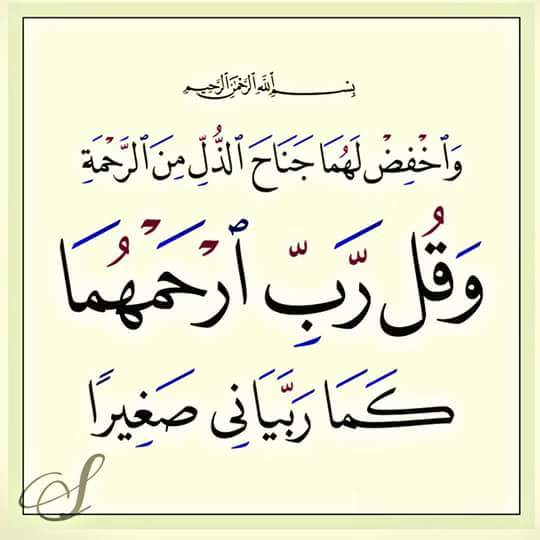 بِسْمِ ٱللَّهِ ٱلرَّحْمَٰنِ ٱلرَّحِيمِ
وَٱخْفِضْ لَهُمَا جَنَاحَ ٱلذُّلِّ مِنَ ٱلرَّحْمَةِ
وَقُل رَّبِّ ٱرْحَمْهُمَا
كَمَا رَبَّيَانِى صَغِيرًا
S